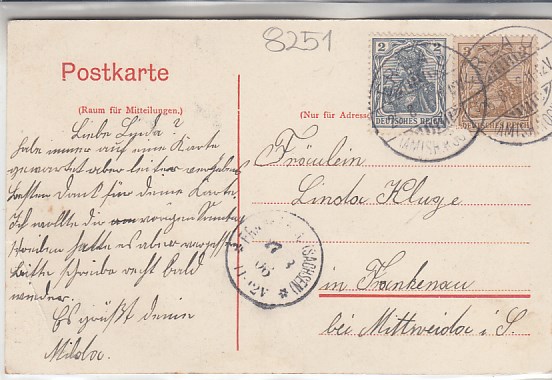 8251
Postkarte
(Raum für Mitteilungen.)
(Nur für Adresse
2 2
DEUTSCHES REICH
3
DEUTSCHES REICH
Liebe Linda?
habe immer auf eine Karte
gewartet aber leider vergebens
Besten Dank für deine Karte.
Ich wollte dir am vorigen Sonntag
schreiben hatte es aber vergessen
Bitte schreibe recht bald
wieder.
Es grüßt deine
Milda.
Fräulein
Linda Kluge
in Frankenau
bei Mittweida i. S.
(SACHSEN)
27 3
06